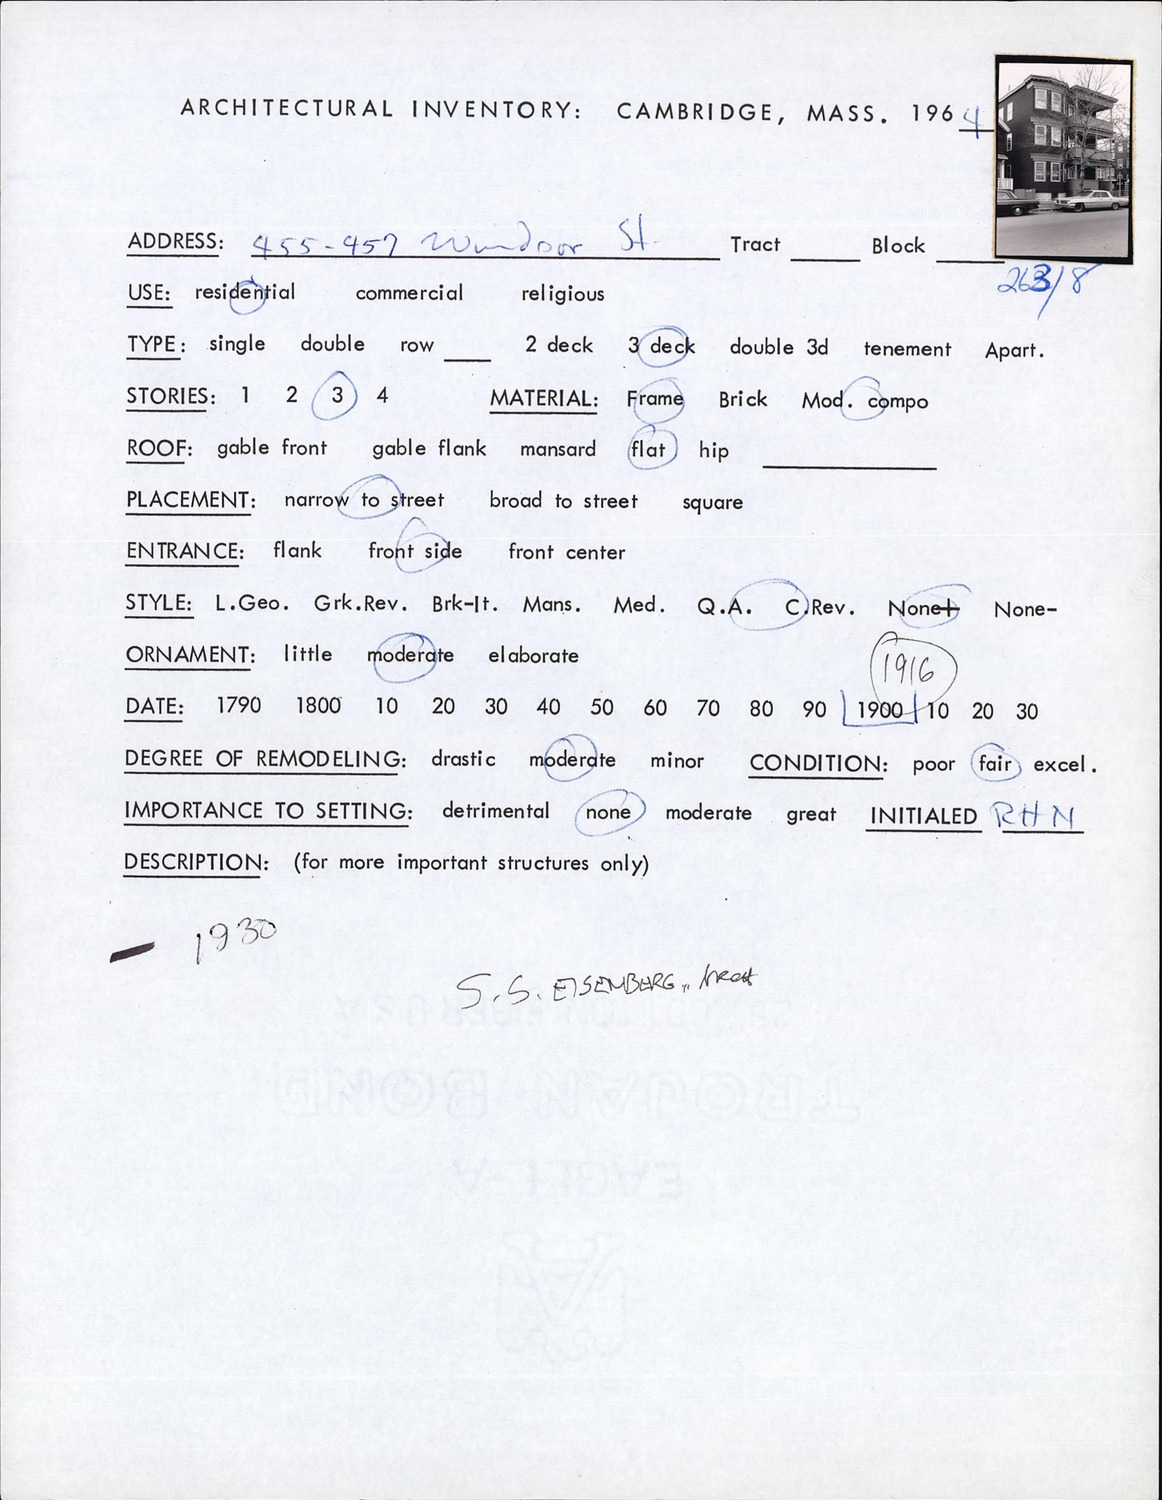 ARCHITECTURAL INVENTORY: CAMBRIDGE, MASS. 1964
ADDRESS: 455-457 Windsor St. Tract Block
263/8
USE: residential commercial religious
TYPE: single double row 2 deck 3 deck double 3d tenement Apart.
STORIES: 1 2 3 4 MATERIAL: Frame Brick Mod. compo
ROOF: gable front gable flank mansard flat hip
PLACEMENT: narrow to street broad to street square
ENTRANCE: flank front side front center
STYLE: L.Geo. Grk.Rev. Brk-It. Mans. Med. Q.A. C.Rev. None+ None-
ORNAMENT: little moderate elaborate
1916
DATE: 1790 1800 10 20 30 40 50 60 70 80 90 1900 10 20 30
DEGREE OF REMODELING: drastic moderate minor CONDITION: poor fair excel.
IMPORTANCE TO SETTING: detrimental none moderate great INITIALED RHN
DESCRIPTION: (for more important structures only)
— 1930
S.S. EISENBERG, ARCH
25% COTTON FIBER U S A
TROJAN BOND
EAGLE-A